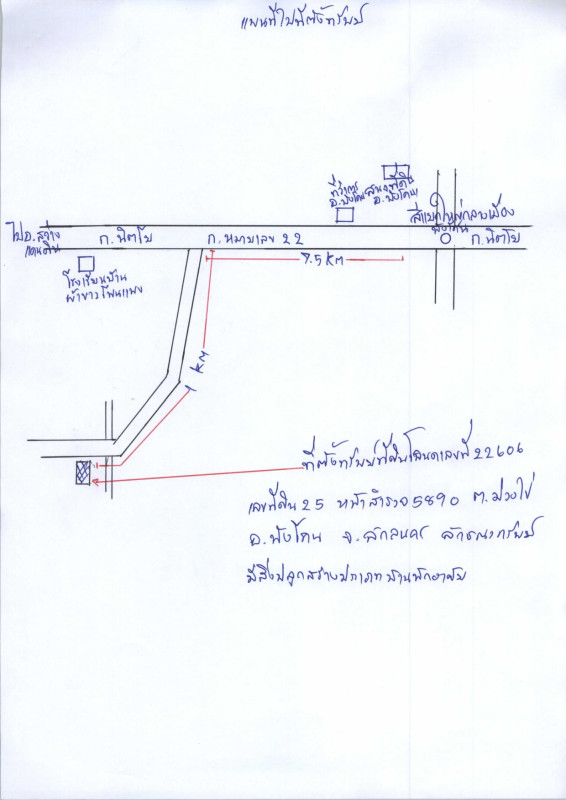 แผนที่ไปที่ตั้งทรัพย์
ที่ว่าการ
อ.พังโคน
สนง.ที่ดิน
อ.พังโคน
สี่แยกใหญ่กลางเมือง
พังโคน
ไปอ.สว่าง
แดนดิน
ถ.นิตโย
ถ.หมายเลข 22
ถ.นิตโย
7.5 KM
โรงเรียนบ้าน
ผ้าขาวโพนแพง
1 KM
ที่ตั้งทรัพย์ที่ดินโฉนดเลขที่ 22606
เลขที่ดิน 25 หน้าสำรวจ 5890 ต.ม่วงไข่
อ.พังโคน จ.สกลนคร ลักษณะทรัพย์
มีสิ่งปลูกสร้างประเภทบ้านพักอาศัย